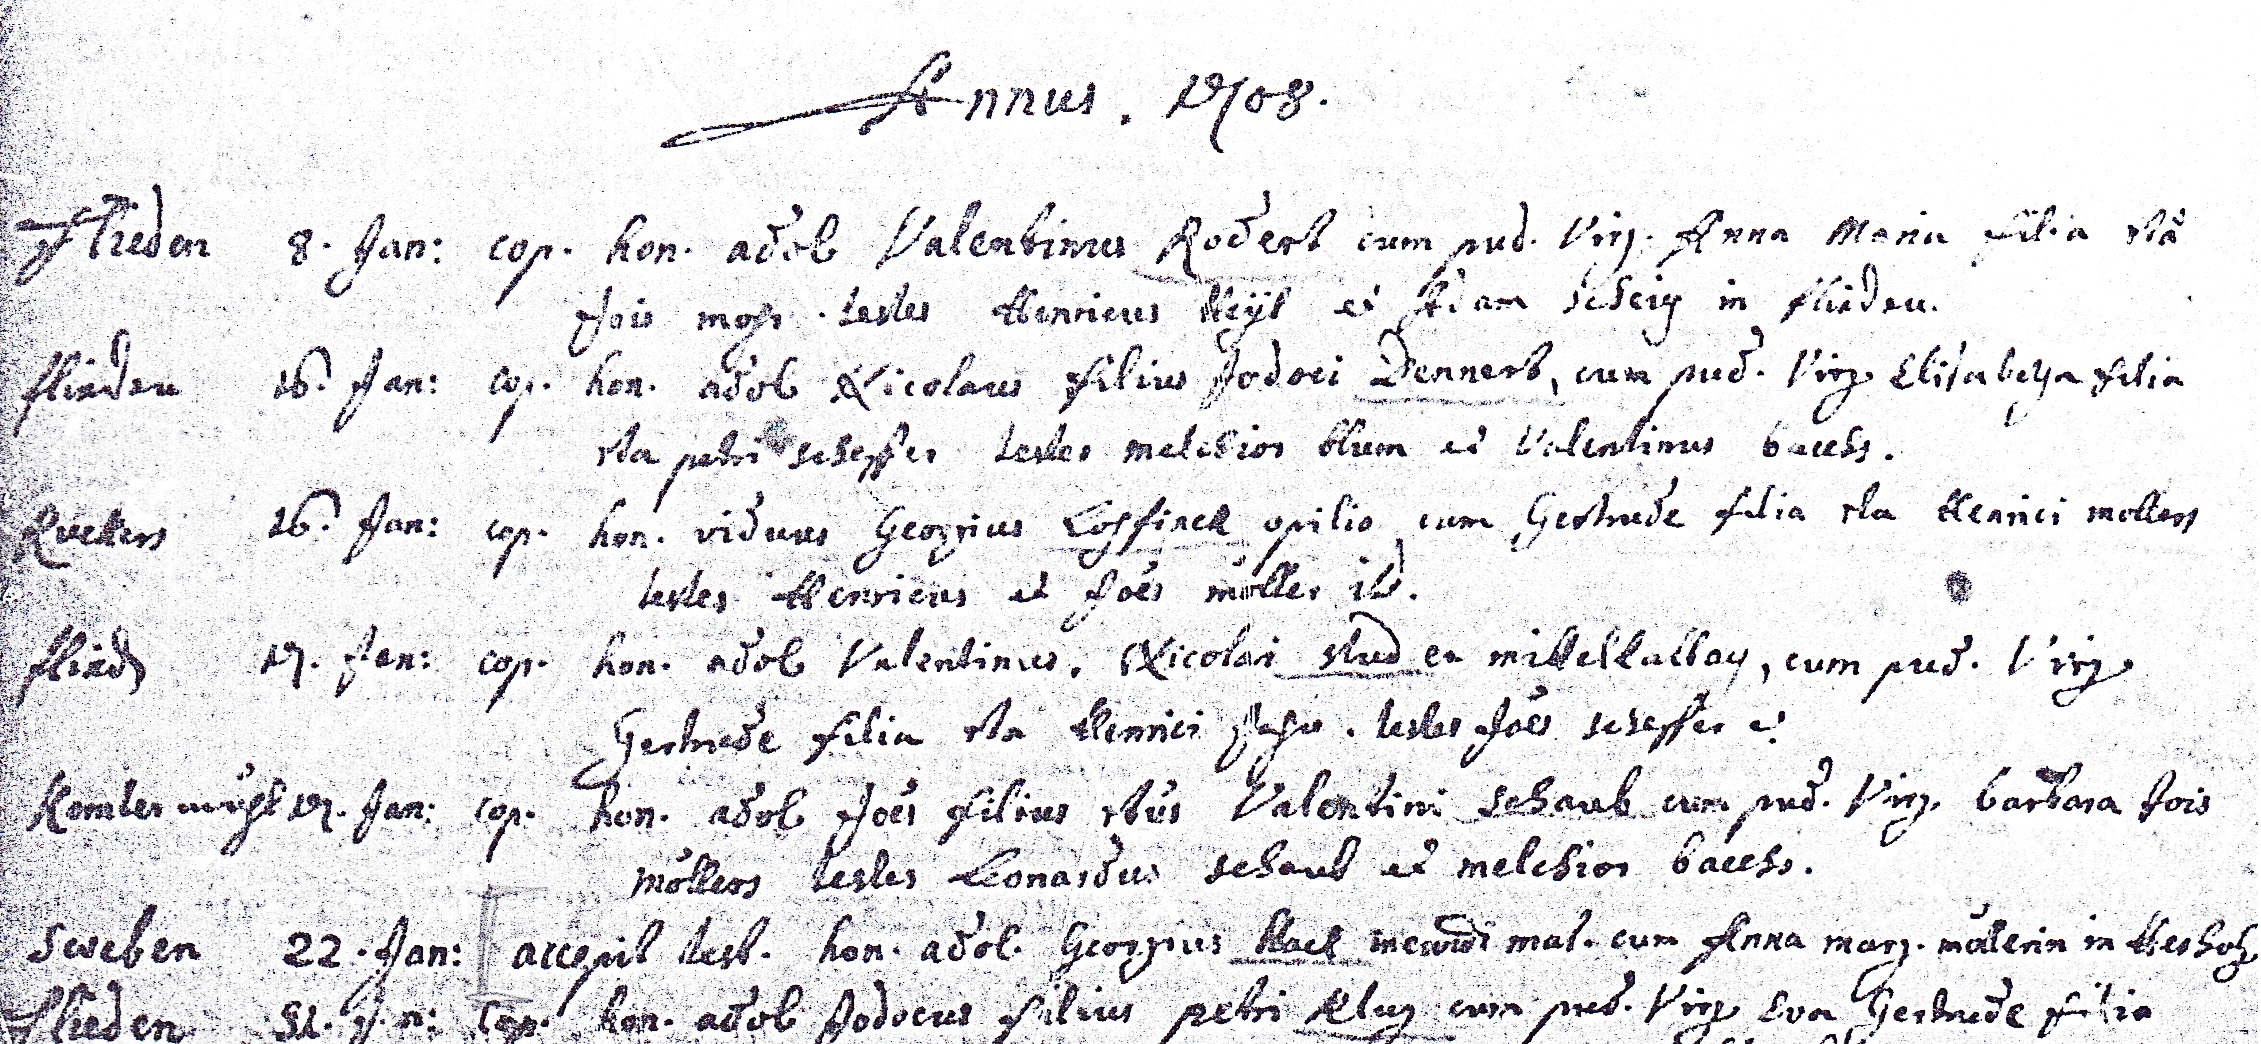 Annus. 1708.
Flieden 8. Jan: cop. hon. adol Valentinus Rodert cum pud. Virg. Anna Maria filia rta
Jois testes Henricus Heÿl et Adam in flieden.
flieden 16. Jan: cop. hon. adol Nicolaus filius Jodoci Dennert, cum pud. Virg. Elisabetha filia
rta petri scheffer testes melchior blum et Valentinus baeuss.
Ruckers 16. Jan: cop. hon. viduus Georgius Losfinck opilio cum Gertrude filia rta Henrici mollers
testes Henricus et Joes möller ib.
flied 17. Jan: cop. hon. adol Valentinus. Nicolai stud ex mittelkalbay, cum pud. Virg.
Gertrude filia rta Henrici testes Joes scheffer et
17. Jan: cop. hon. adol Joes filius rtus Valentini schaub cum pud. Virg. barbara Jois
möllers testes Leonardus schaub et melchior baeuss.
Sweben 22. Jan: accepit test. hon. adol. Georgius Hack mat. cum Anna marg. möllerin in Hesholz
Flieden 31. Jan: cop. hon. adol Jodocus filius petri Klug cum pud. Virg. Eva Gertrude filia